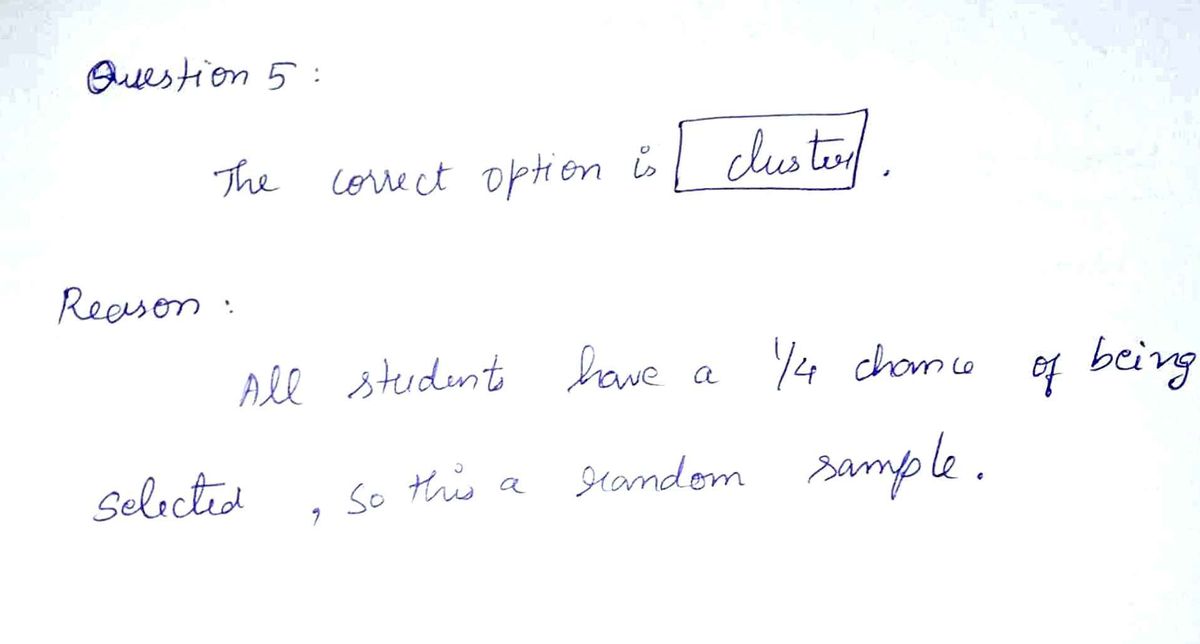 Question 5 :
The correct option is cluster .
Reason :
All students have a 1/4 chance of being
selected , so this a random sample .